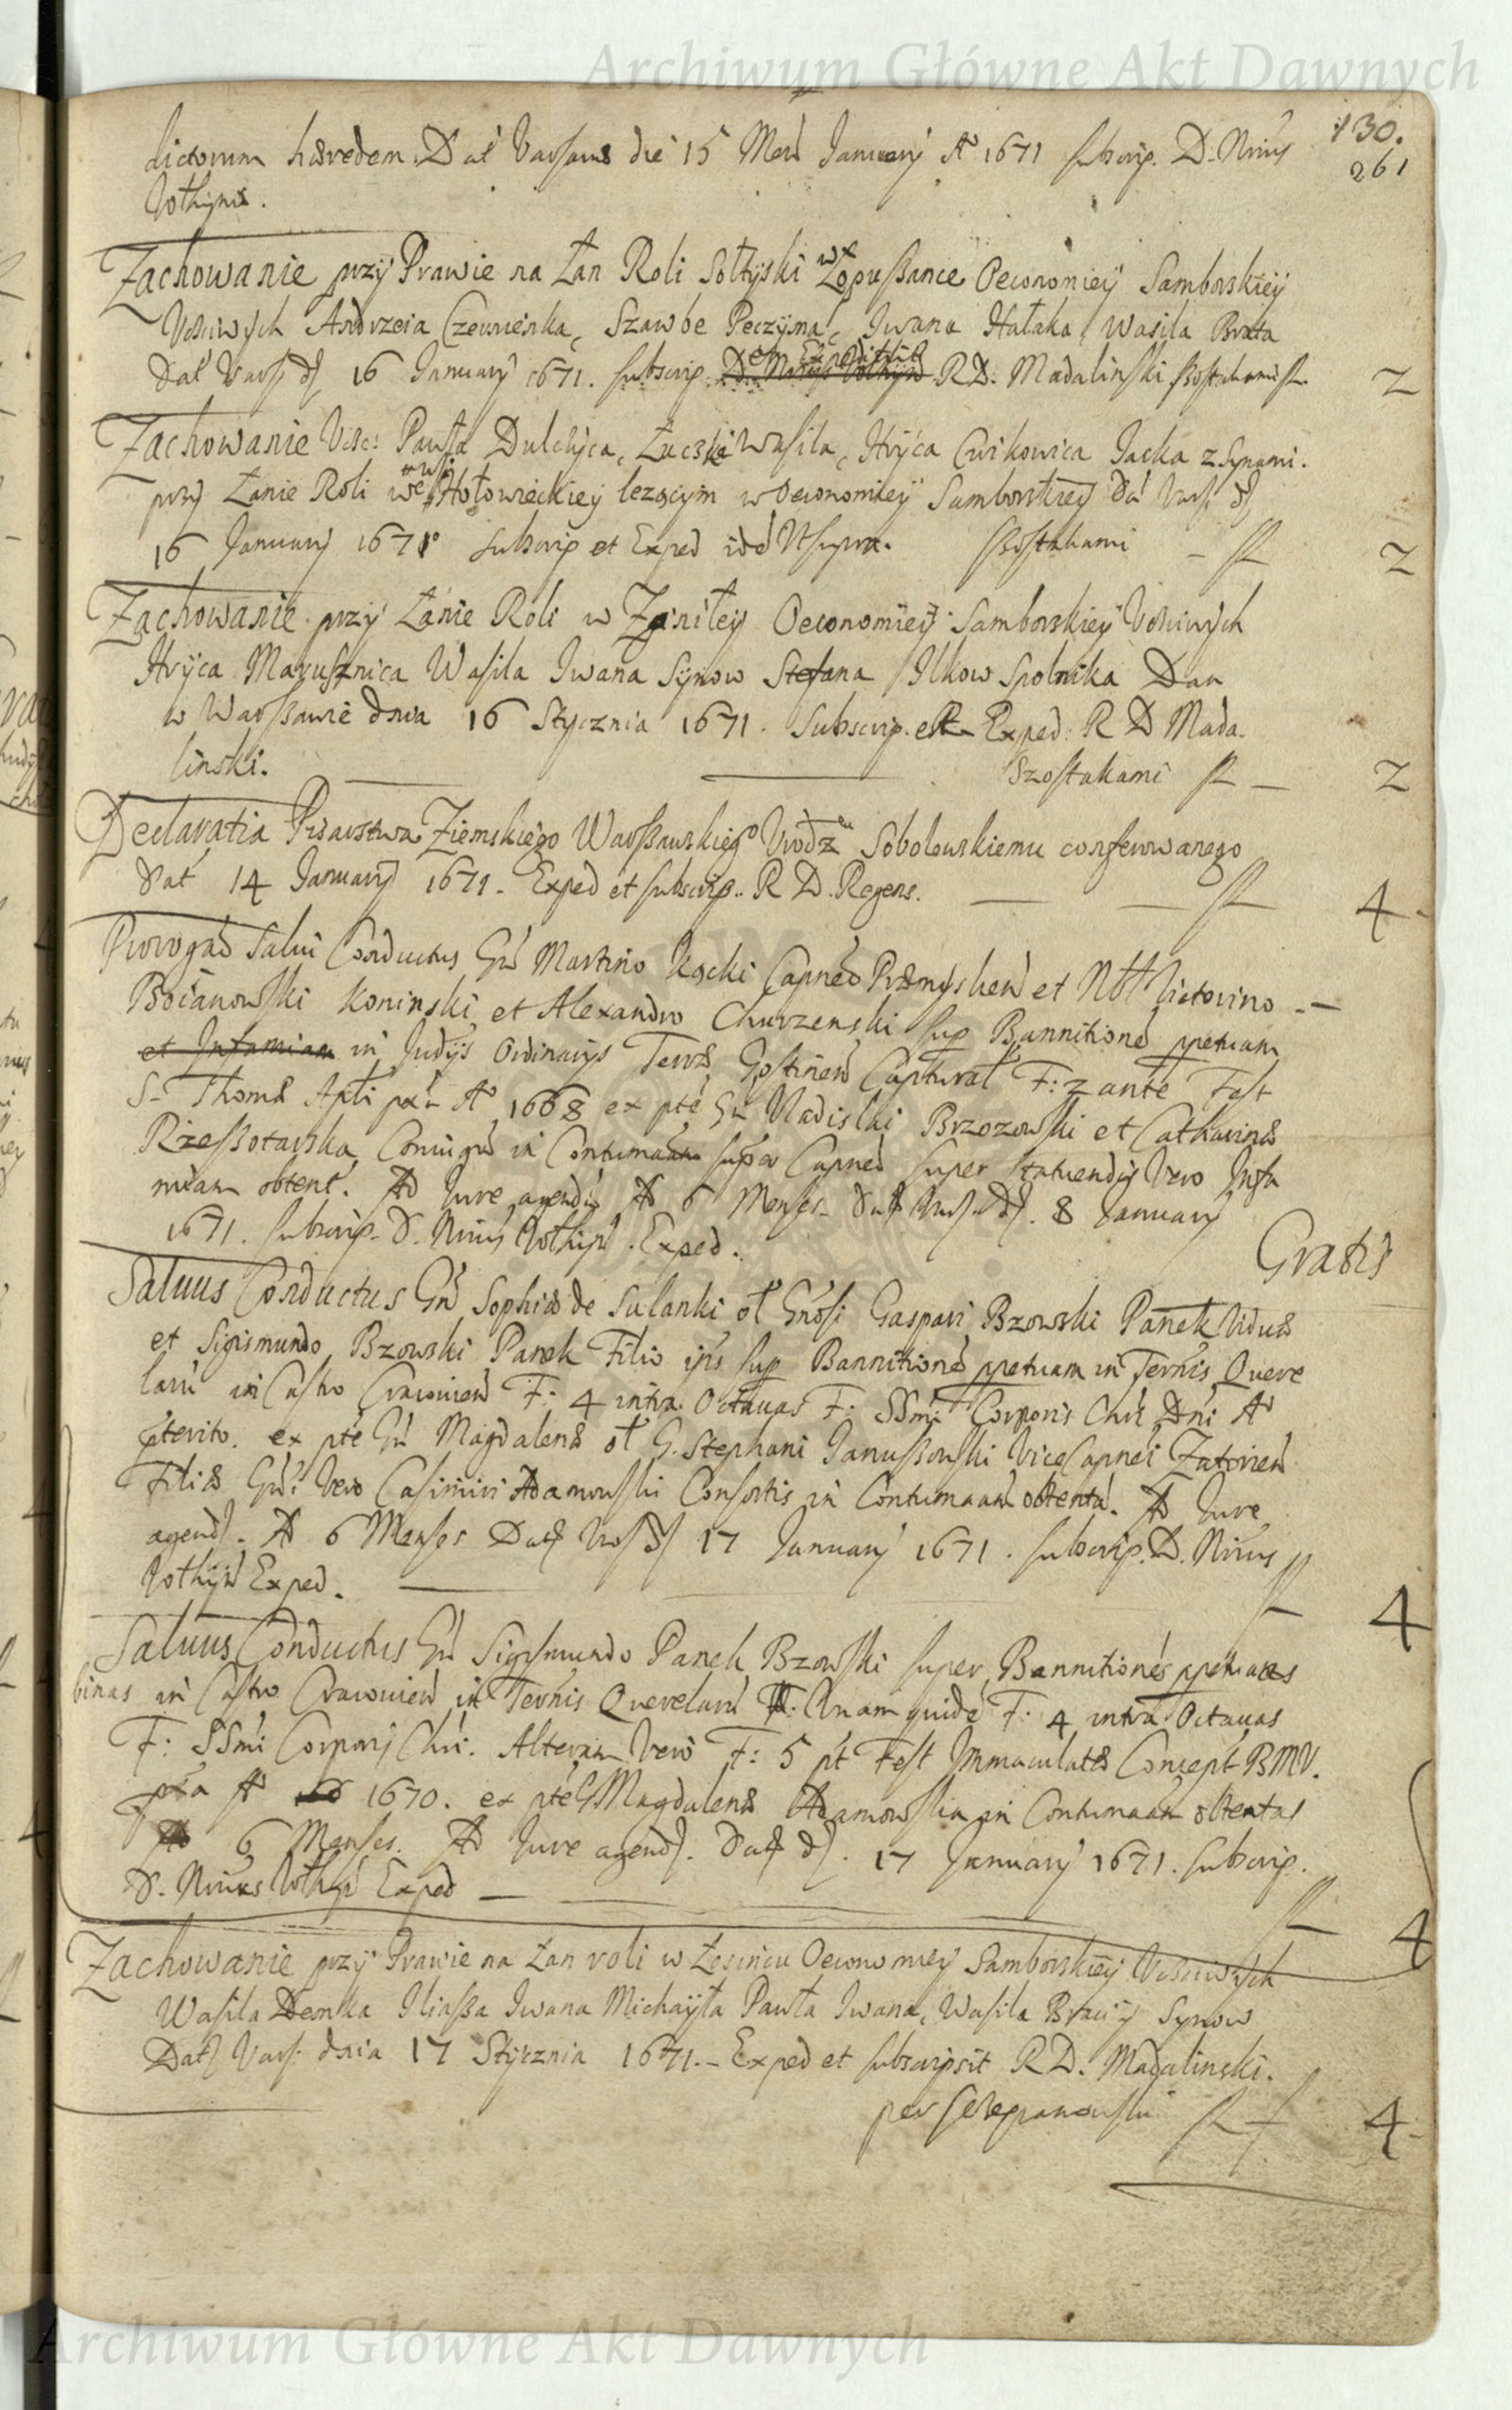 Archiwum Główne Akt Dawnych
130.
261
dictorum haeredem. Dat Varsaviae die 15 Mens January A° 1671 subscrip. D. Nrius
Vothynus.
Zachowanie przy Prawie na Łan Roli Sołtyski w Łopussance Oeconomiey Samborskiey
Uczciwych Andrzeia Czewnieńka, Szawbe Peczyma, Jwana Hałaka, Wasila Brata
Dat Vars d 16 January 1671. subscrip. et Expedivit R D. Madalinski szostakami fl. 2
Zachowanie Ucz: Pawła Dulchyca, Łucska Wasila, Hryca Cwikowica Jacka z Synami.
przy Łanie Roli we wsi Hołowieckiey lezącym w Oeconomiey Samborskiey Dat Vars. d
16 January 1671° subscrip et Exped idē Utsupra. szostakami – fl 2
Zachowanie przy Łanie Roli w Zgniłey Oeconomiey Samborskiey Uczciwych
Hryca Marusznica Wasila Iwana Synow Stefana Ilkow Spolnika Dan
w Warszawie dnia 16 Stycznia 1671. Subscrip. et Exped: R D Mada-
linski. Szostakami fl – 2
Declaratia Pisarstwa Ziemskiego Warszawskieg° Urodz Sobolewskiemu conferowanego
Dat 14 January 1671. Exped et subscrip. R D. Regens. fl 4
Prorogaō Salui Conductus Gn Martino Kącki Capneo Praemyslien et Nbl Victorino
Bocianowski Koninski et Alexandro Churzenski sup Bannitionē ppetuam
et Infamiam in Judijs Ordinarijs Terrae Gostinen Captural F: 2 ante Fest
S. Thomae Apli A° 1668 ex pte Gn Vladislai Brzozowski et Catharinae
Rzeszotarska Coniugū in Contumaām super Capneo super statuendis Vero Infa
miam obtent. Ad Jure agendū Ad 6 Menses. Dat Vars. d. 8 January
1671. subscrip. D. Nrius Vothyn. Exped. Gratis
Saluus Conductus Gn Sophiae de Sulanki ol Gnosi Gaspari Bzowski Panek Viduae
et Sigismundo Bzowski Panek Filio ips sup Bannitionē ppetuam in Ternis Quere
larū in Castro Cracovien F: 4 intra Octauas F: SSmi Corporis Chri Dni A°
pterito. ex pte Gn Magdalenae ol G. Stephani Janussowski ViceCapnei Zatorien
Filiae Gn: Vero Casimiri Adamowski Consortis in Contumaām obtentā. Ad Jure
agend. Ad 6 Menses Dat Vars d 17 January 1671. subscrip. D. Nrius
Vothyn Exped. fl 4
Saluus Conductus Gn Sigismundo Panek Bzowski super Bannitiones ppetuas
binas in Castro Cracovien in Ternis Querelarū Unam quidē F: 4 intra Octauas
F: SSmi Corporis Chri. Alteram Vero F: 5 pt Fest Immaculatae Concept BMV.
A° 1670. ex pte G Magdalenae Adamowska in Contumaām obtentas
Ad 6 Menses. Ad Jure agend. Dat d. 17 January 1671. subscrip.
D. Nrius Vothyn Exped – fl 4
Zachowanie przy Prawie na Łan roli w Łosincu Oeconomiey Samborskiey Uczciwych
Wasila Demka Iliassa Iwana Michayła Pawła Iwana, Wasila Braciy Synow
Dat Vars: dnia 17 Stycznia 1671. – Exped et subscripsit R D. Madalinski.
per fl 4
Archiwum Główne Akt Dawnych